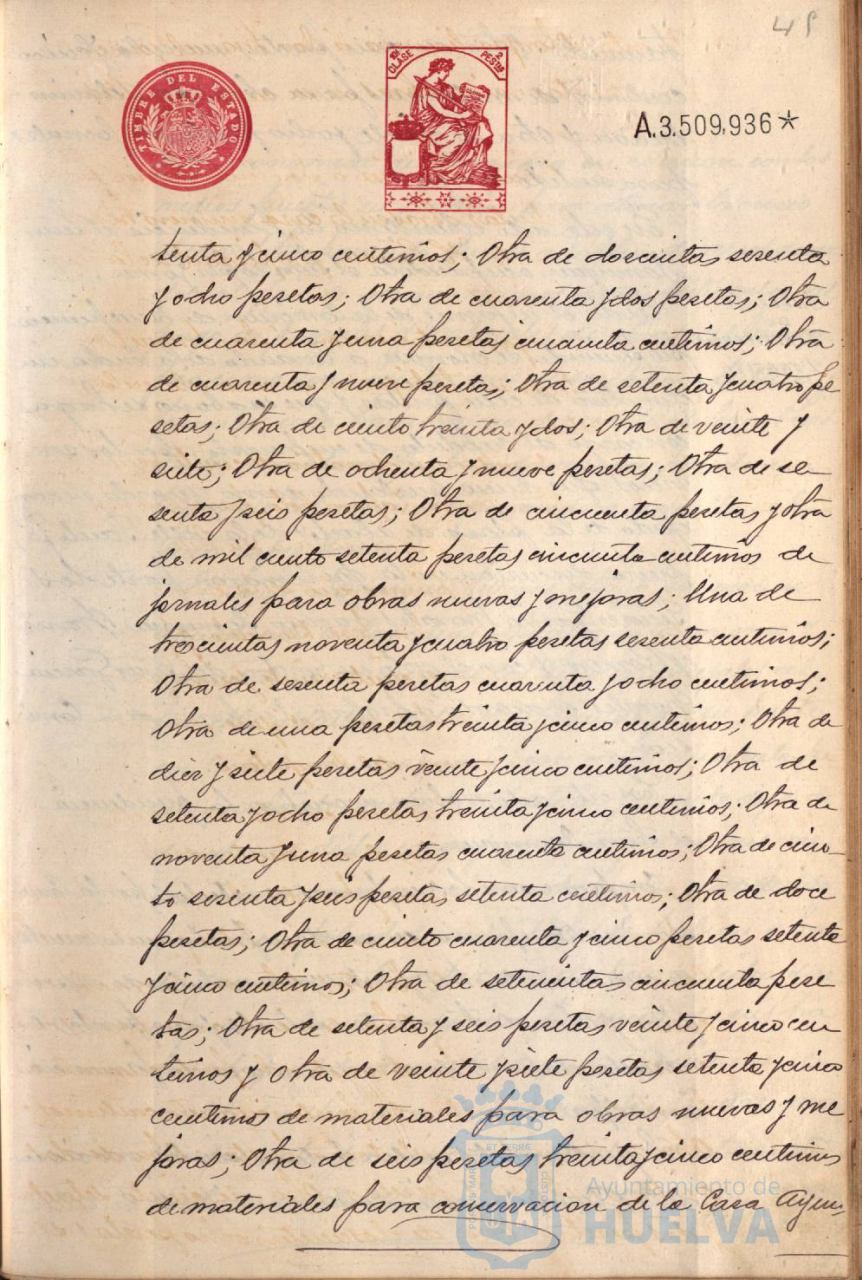 48
TIMBRE DEL ESTADO
10ª CLASE 2 PESTAS
A.3.509,936*
tenta y cinco centimos; Otra de doscientas sesenta
y ocho pesetas; Otra de cuarenta y dos pesetas; Otra
de cuarenta y una pesetas cincuenta centimos; Otra
de cuarenta y nueve pesetas; Otra de setenta y cuatro pe
setas; Otra de ciento treinta y dos; Otra de veinte y
siete; Otra de ochenta y nueve pesetas; Otra de se
senta y seis pesetas; Otra de cincuenta pesetas y otra
de mil ciento setenta pesetas cincuenta centimos de
jornales para obras nuevas y mejoras; Una de
trescientas noventa y cuatro pesetas sesenta centimos;
Otra de sesenta pesetas cuarenta y ocho centimos;
Otra de una pesetas treinta y cinco centimos; Otra de
diez y siete pesetas veinte y cinco centimos; Otra de
setenta y ocho pesetas treinta y cinco centimos; Otra de
noventa y una pesetas cuarenta centimos; Otra de cien-
to sesenta y seis pesetas setenta centimos; Otra de doce
pesetas; Otra de ciento cuarenta y cinco pesetas setenta
y cinco centimos; Otra de setecientas cincuenta pese
tas; Otra de setenta y seis pesetas veinte y cinco cen
timos y otra de veinte y siete pesetas setenta y cinco
centimos de materiales para obras nuevas y me
joras; Otra de seis pesetas treinta y cinco centimos
de materiales para conservacion de la Casa Ayun-
Ayuntamiento de
HUELVA